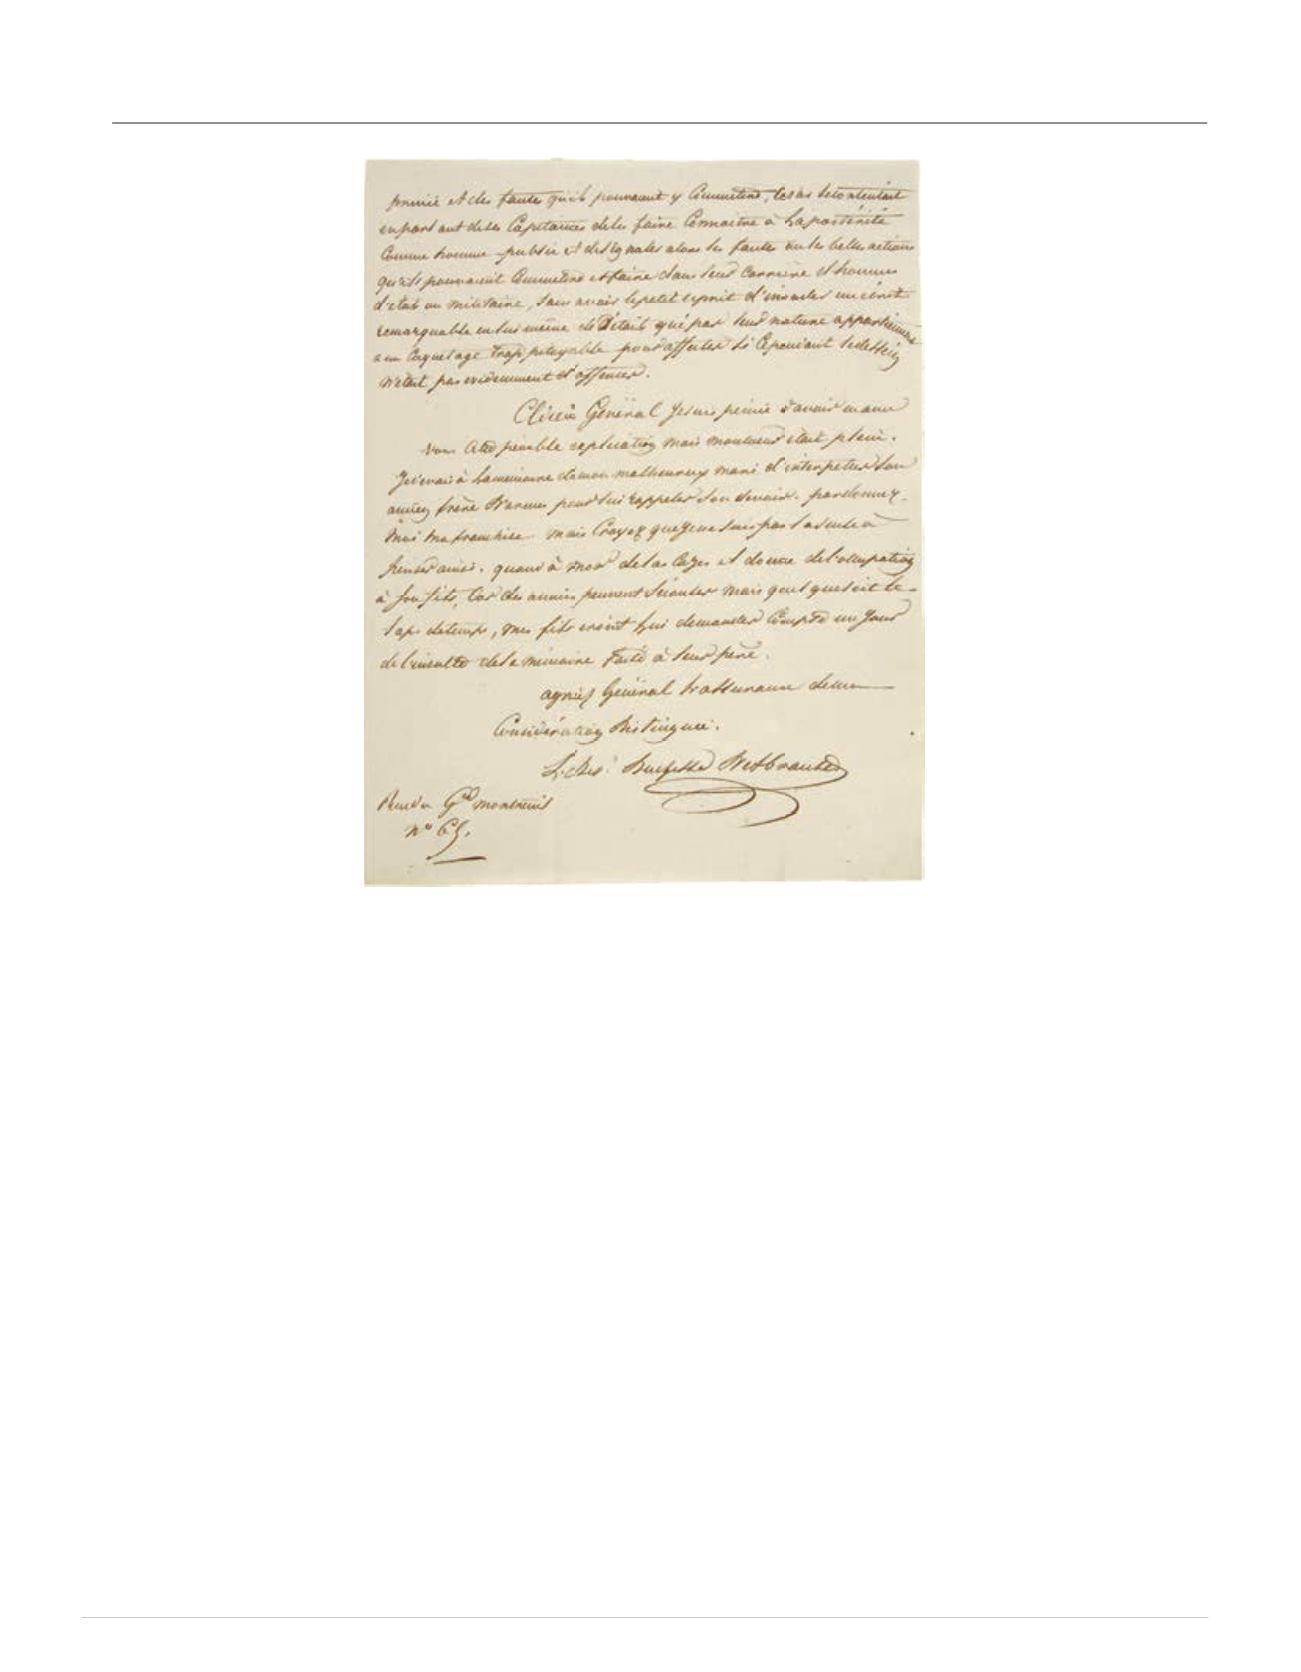 privée et des fautes qu'ils pouvaient y Commettre, César se contentait
en parlant de ses Capitaines de les faire Connaitre à la postérité
Comme homme public et designales alors les fautes ou les belles actions
qu'ils pouvaient Commettre et faire dans leur Carrière d'homme
d'etat ou militaire, sans avoir le petit esprit d'inserter un écrit
remarquable en lui même de Détails qui par leur nature appartiennent
a un Caquetage trop pitoyable pour affecter si Cependant le dessein
n'etait pas evidemment d'offenser.
Général Je suis peinée d'avoir
vous pénible explication mais mon cœur etait plein.
Je devais à la mémoire de mon malheureux mari d'interpeller son
ancien frère D'armes pour lui rappeler son devoir. pardonnez
Moi ma franchise. mais Croyez que je ne suis pas la seule à
penser ainsi. quand à Mr de las Cazes il donne de l'occupation
à son fils, Car des années peuvent s'écouler mais quel que soit le
laps de temps, mes fils iront lui demander Compte un Jour
de l'insulte de la mémoire faite à leur père.
agréez Général l'assurance de ma
Considération Distinguée.
Duchesse D'Abrantès
Rue du Gd montreuil
no 65.